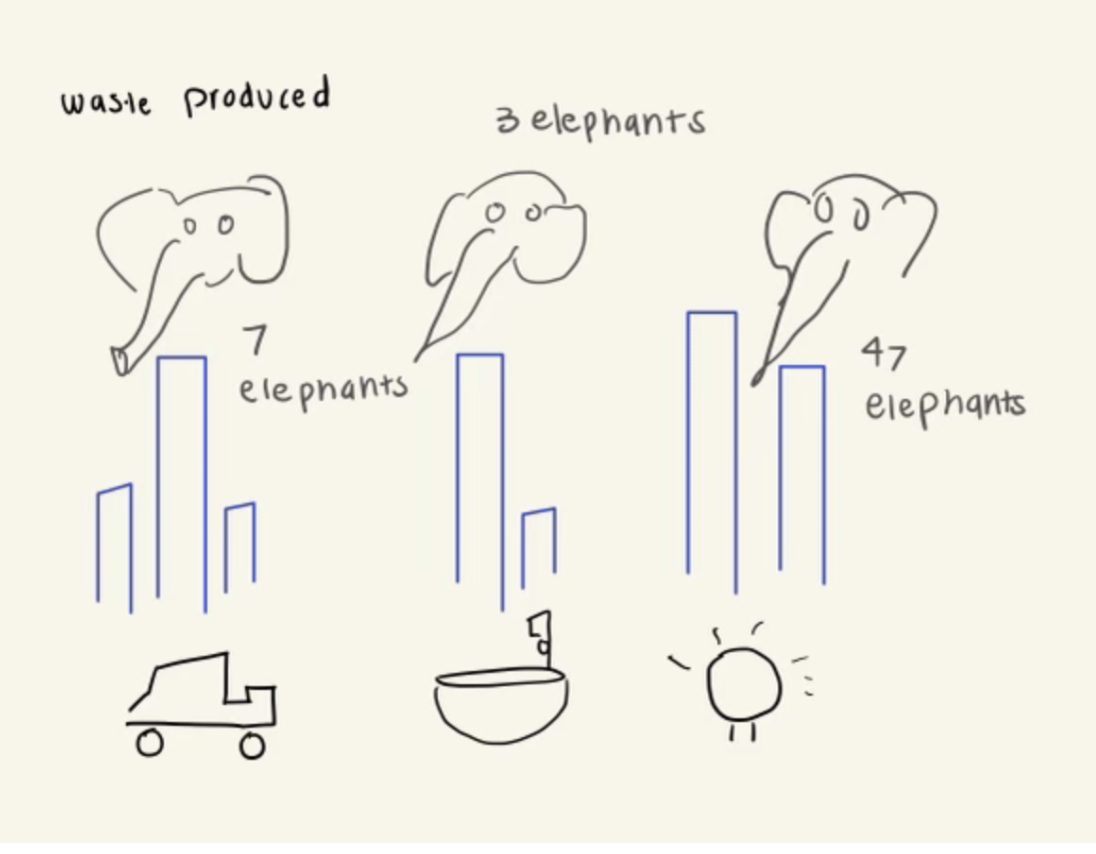 waste produced
3 elephants
7
elephants
47
elephants